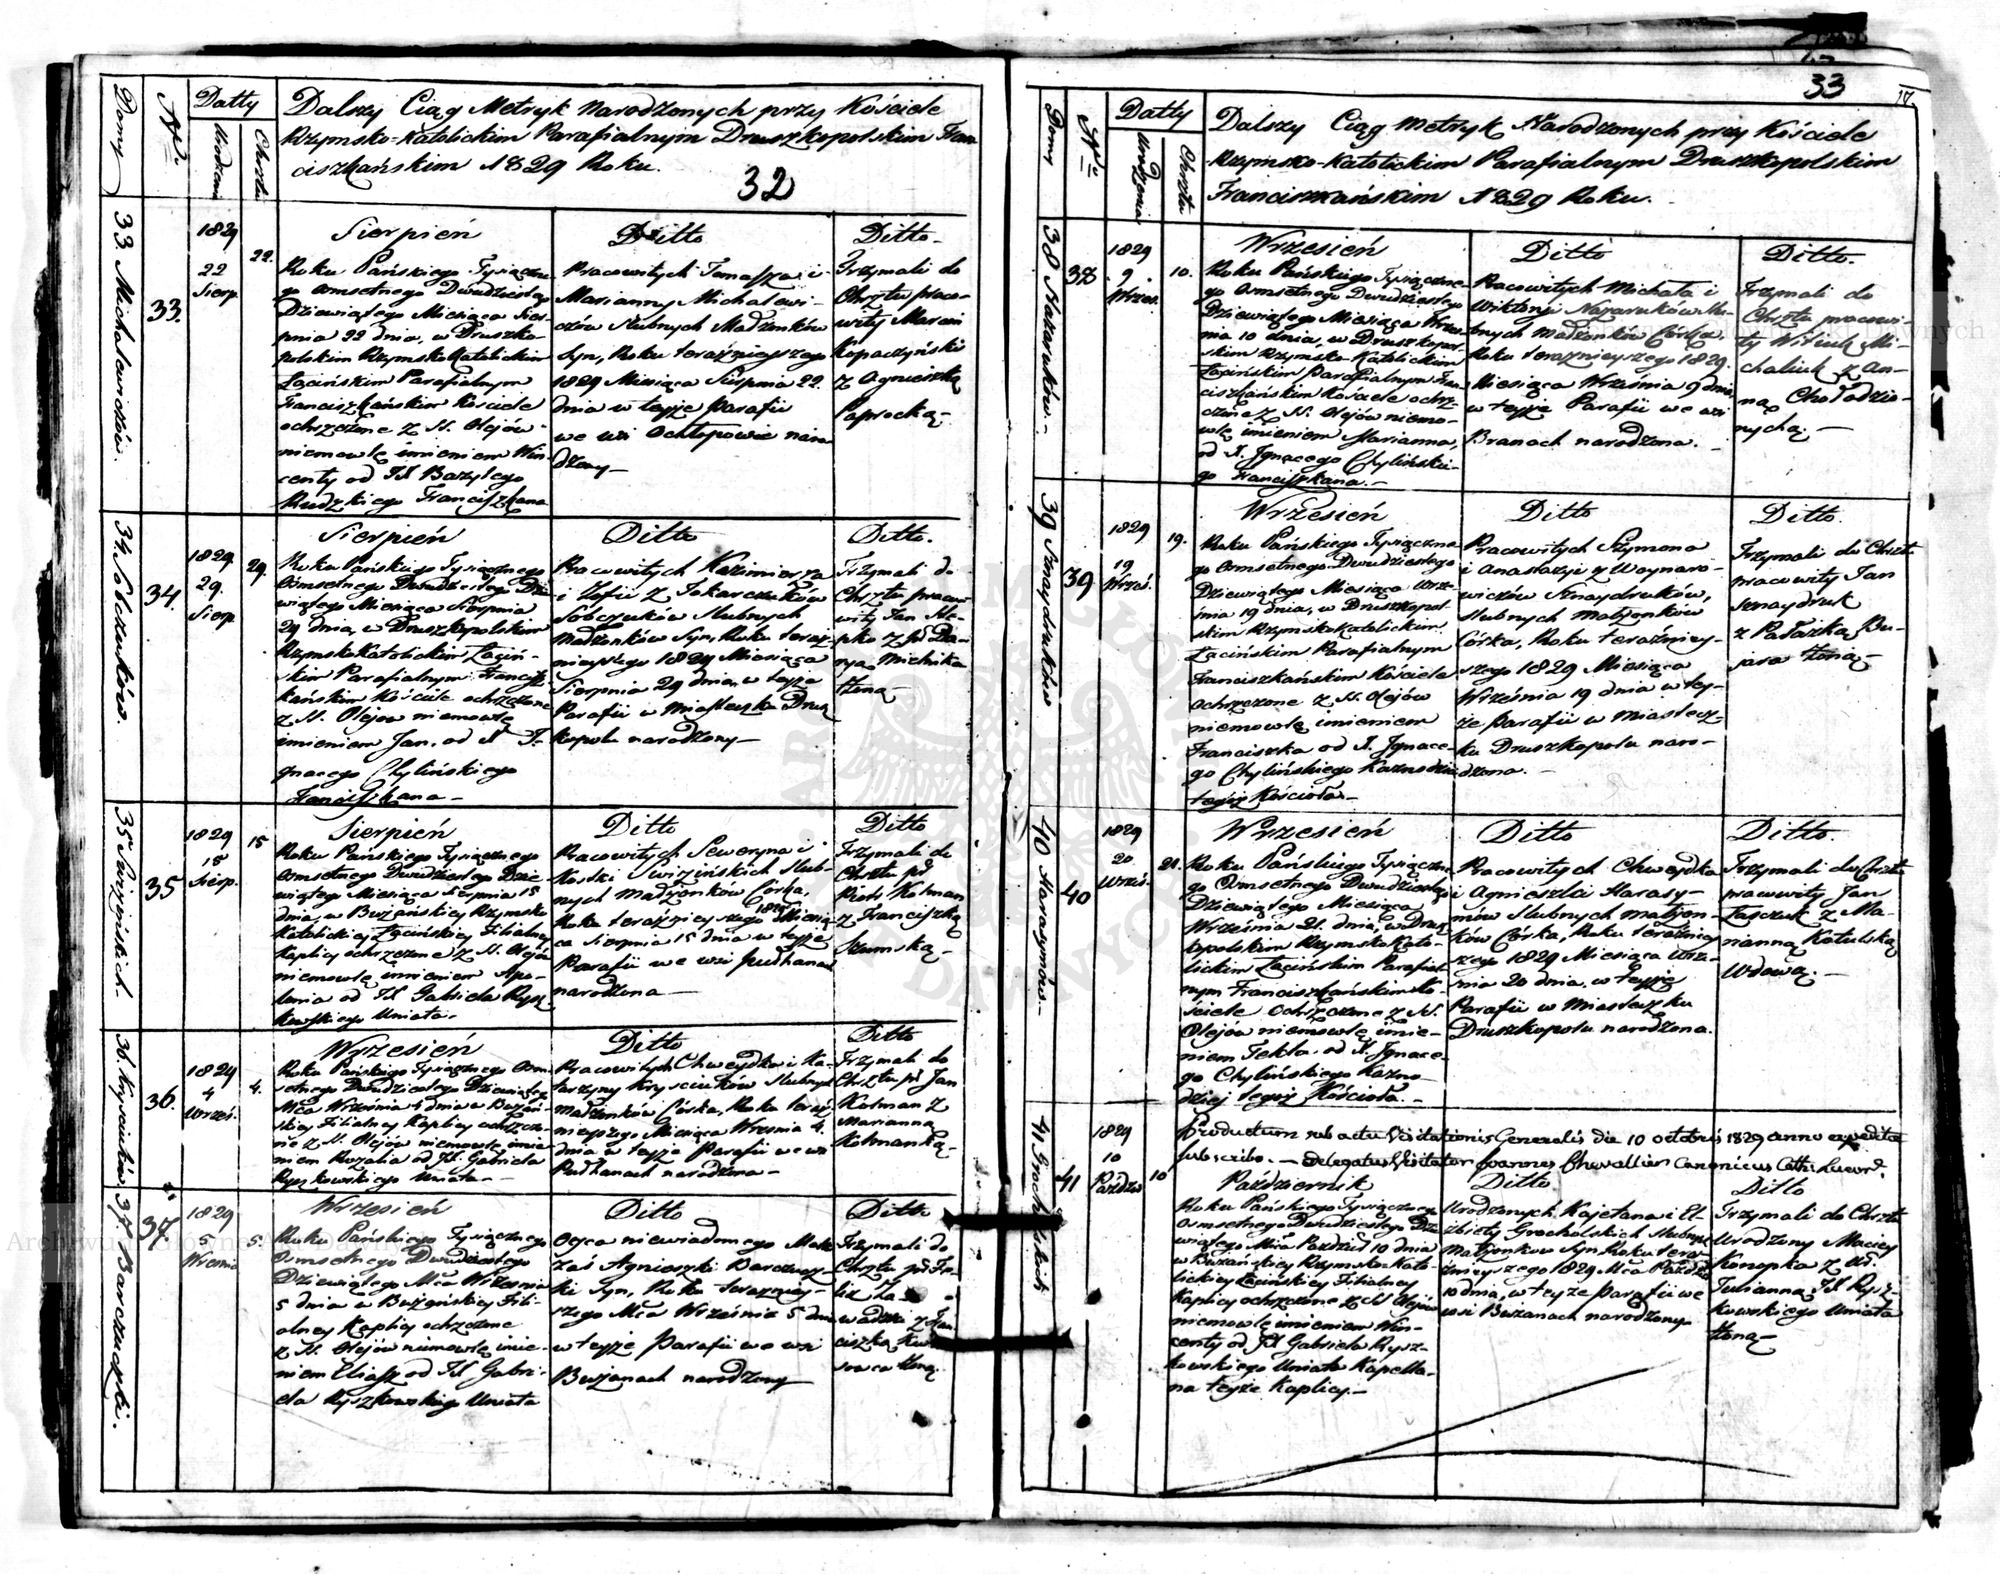 Domy
Nro
Datty
Urodzenia
Chrztu
Dalszy Ciąg Metryk Narodzonych przy Kościele
Rzymsko-Katolickim Parafialnym Druszkopolskim Fran
ciszkańskim 1829 Roku.
32
33 Michalewiczów.
33.
1829
22
Sierp.
22.
Sierpień
Roku Pańskiego Tysiączne-
go Osmsetnego Dwudziestego
Dziewiątego Miesiąca Sier-
pnia 22 dnia, w Druszko-
polskim Rzymsko Katolickim
Łacińskim Parafialnym
Franciszkańskim Kościele
ochrzczone z S. Olejów
niemowle imieniem Win-
centy od JX Bazylego
Rudzkiego Franciszkana
Ditto
Pracowitych Tomasza i
Marianny Michalewi-
czów Slubnych Madzonków
Syn, Roku teraźnieyszego
1829 Miesiąca Sierpnia 22
dnia w teyże Parafii
we wsi Ochłopowie naro
dzony—
Ditto-
Trzymali do
Chrztu praco-
wity Marcin
Kopaczyński
z Agnieszką
Paprocką—
34. Sobczuków.
34.
1829.
29.
Sierp.
29.
Sierpień
Roku Pańskiego Tysiącznego
Osmsetnego Dwudziestego Dzie
wiątego Miesiąca Sierpnia
29 dnia, w Druszkopolskim
Rzymsko Katolickim Łaciń-
skim Parafialnym Francisz
kańskim Kościele ochrzczone
z S. Olejow niemowlę
imieniem Jan. od X J-
gnacego Chylińskiego
Franciszkana—
Ditto
Pracowitych Kazimierza
i Zofii z Tokarczuków
Sobczuków Slubnych
Madzonków Syn, Roku teraz-
nieyszego 1829 Miesiąca
Sierpnia 29 dnia, w teyże
Parafii w Miasteczku Drusz
kopolu narodzony—
Ditto.
Trzymali do
Chrztu praco-
wity Jan Sle-
pko z
Michnika
żoną—
35 Swirzyńskich.
35
1829
15
Sierp.
15
Sierpień
Roku Pańskiego Tysiącznego
Osmsetnego Dwudziestego Dzie
wiątego Miesiąca Sierpnia 15
dnia, w Bużańskiey Rzymsko
Katolickiey Łacińskiey Filialney
Kaplicy ochrzczone z S. Olejów
niemowlę imieniem Apo-
lonia od JX Gabriela Rysz-
kowskiego Uniata.
Ditto
Pracowitych Seweryna i
Kostki Swirzińskich Slub-
nych Madżonków Corka,
Roku teraznieyszego 1829 Miesią
ca Sierpnia 15 dnia w teyże
Parafii we wsi Pudhanach
narodzona—
Ditto
Trzymali do
Chrztu
Piotr Kolman
z Franciszką
Szumską—
36 Kryściuków
36.
1829
4
Wrześ.
4.
Wrzesień
Roku Pańskiego Tysiącznego Osm-
setnego Dwudziestego Dziewiątego
Mca Września 4 dnia w Bużań-
skiey Filialney Kaplicy ochrzczo-
ne z S. Olejów niemowle imie-
niem Rozalia od JX. Gabriela
Ryszkowskiego Uniata—
Ditto
Pracowitych Chweydka i Ka-
tarzyny Kryściuków Slubnych
Madżonków Córka, Roku teraz
nieyszego Miesiąca Wrzesnia 4
dnia w teyże Parafii we wsi
Pudhanach narodzona—
Ditto
Trzymali do
Chrztu Jan
Kolman z
Marianna
Kolmanką—
37 Barczuski.
37.
1829
5
Wrzesnia
5.
Wrzesień
Roku Pańskiego Tysiącznego
Osmsetnego Dwudziestego
Dziewiątego Mca Wrzesnia
5 dnia w Bużańskiey Fili-
alney Kaplicy ochrzczone
z S. Olejów niemowlę imie-
niem Eliasz od JX Gabri-
ela Ryszkowskiego Uniata
Ditto
Oyca niewiadomego Mat-
zaś Agnieszki Barczusz-
ki Syn, Roku teraźniey-
szego Mca Września 5 dnia
w teyże Parafii we wsi
Bużanach narodzony
Ditto
Trzymali do
Chrztu
z Fran-
ciszką
żoną
33
17.
Domy
Nro
Datty
Urodzenia
Chrztu
Dalszy Ciąg Metryk Narodzonych przy Kościele
Rzymsko-Katolickim Parafialnym Druszkopolskim
Franciszkańskim 1829 Roku.
38 Nazaruków.
38
1829
9
Wrześ.
10.
Wrzesień
Roku Pańskiego Tysiączne-
go Osmsetnego Dwudziestego
Dziewiątego Miesiąca Wrześ-
nia 10 dnia, w Druszkopol-
skim Rzymsko-Katolickim
Łacińskim Parafialnym Fran-
ciszkańskim Kościele ochrz-
czone z S. Olejów niemo-
wle imieniem Marianna,
od X. Jgnacego Chylińskie-
go Franciszkana.—
Ditto
Pracowitych Michała i
Wiktoryi Nazaruków Slu-
bnych Madżonków Córka,
Roku teraznieyszego 1829.
Miesiąca Września 9 dnia
w teyże Parafii we wsi
Branach narodzona.—
Ditto.
Trzymali do
Chrztu pracowi-
ty Mi-
chaluk z An-
ną Chołodzio-
nychą.—
39 Sznaydruków
39
1829
19
Wrześ.
19.
Wrzesień
Roku Pańskiego Tysiączne
go Osmsetnego Dwudziestego
Dziewiątego Miesiąca Wrze-
śnia 19 dnia, w Druszkopol-
skim Rzymsko Katolickim
Łacińskim Parafialnym
Franciszkańskim Kościele
ochrzczone z S. Olejów
niemowlę imieniem
Franciszka od X. Jgnace-
go Chylińskiego Kaznodziei
tegoż Kościoła—
Ditto
Pracowitych Szymona
i Anastazyi z Woynaro-
wiczów Sznaydruków,
Slubnych Małżonków
Córka, Roku teraźniey-
szego 1829 Miesiąca
Września 19 dnia w tey-
że Parafii w Miastecz-
ku Druszkopolu naro-
dzona.—
Ditto.
Trzymali do Chrzt.
pracowity Jan
Sznaydruk
z Pałażką Bu-
jara żoną—
40 Harasymów.
40
1829
20
Wrześ.
21.
Wrzesień
Roku Pańskiego Tysiączne
go Osmsetnego Dwudziestego
Dziewiątego Miesiąca
Września 21. dnia, w Drusz
kopolskim Rzymsko Kato-
lickim Łacińskim Parafial-
nym Franciszkańskim Ko-
ściele ochrzczone z S.
Olejów niemowlę imie-
niem Tekla. od X. Jgnace-
go Chylińskiego Kazno-
dziej tegoż Kościoła.—
Ditto
Pracowitych Chweydka
i Agnieszki Harasy-
mów Slubnych Małżon-
ków Córka, Roku teraźniey
szego 1829 Miesiąca Wrze-
śnia 20 dnia, w teyże
Parafii w Miasteczku
Druszkopolu narodzona.
Ditto.
Trzymali do Chrztu
pracowity Jan
Taszczuk z Ma-
rianną Kotulską
Wdową.—
41 Grocholskich
41
1829
10
Paździer
10
Productum sub actu Visitationis Generalis die 10 octobris 1829 anno expedita
subscribo.— Delegatus Visitator Joannes Chevallier Canonicus Cath: Luceor.
Październik
Roku Pańskiego Tysiącznego
Osmsetnego Dwudziestego Dzie
wiątego Mca Paździer 10 dnia
w Bużańskiey Rzymsko-Kato-
lickiey Łacińskiey Filialney
Kaplicy ochrzczone z S Olejów
niemowlę imieniem Win-
centy od JX Gabriela Rysz-
kowskiego Uniata Kapella-
na teyże Kaplicy.—
Ditto.
Urodzonych Kajetana i El-
żbiety Grocholskich Slubnych
Małżonkow Syn, Roku tera-
źnieyszego 1829 Mca Paździer
10 dnia, w teyże Parafii we
wsi Bużanach narodzony
Ditto
Trzymali do Chrztu
Urodzony Maciey
Konopka z
Julianna JX Rysz-
kowskiego Uniata
żoną—
Archiwum Główne Akt Dawnych
Archiwum Główne Akt Dawnych